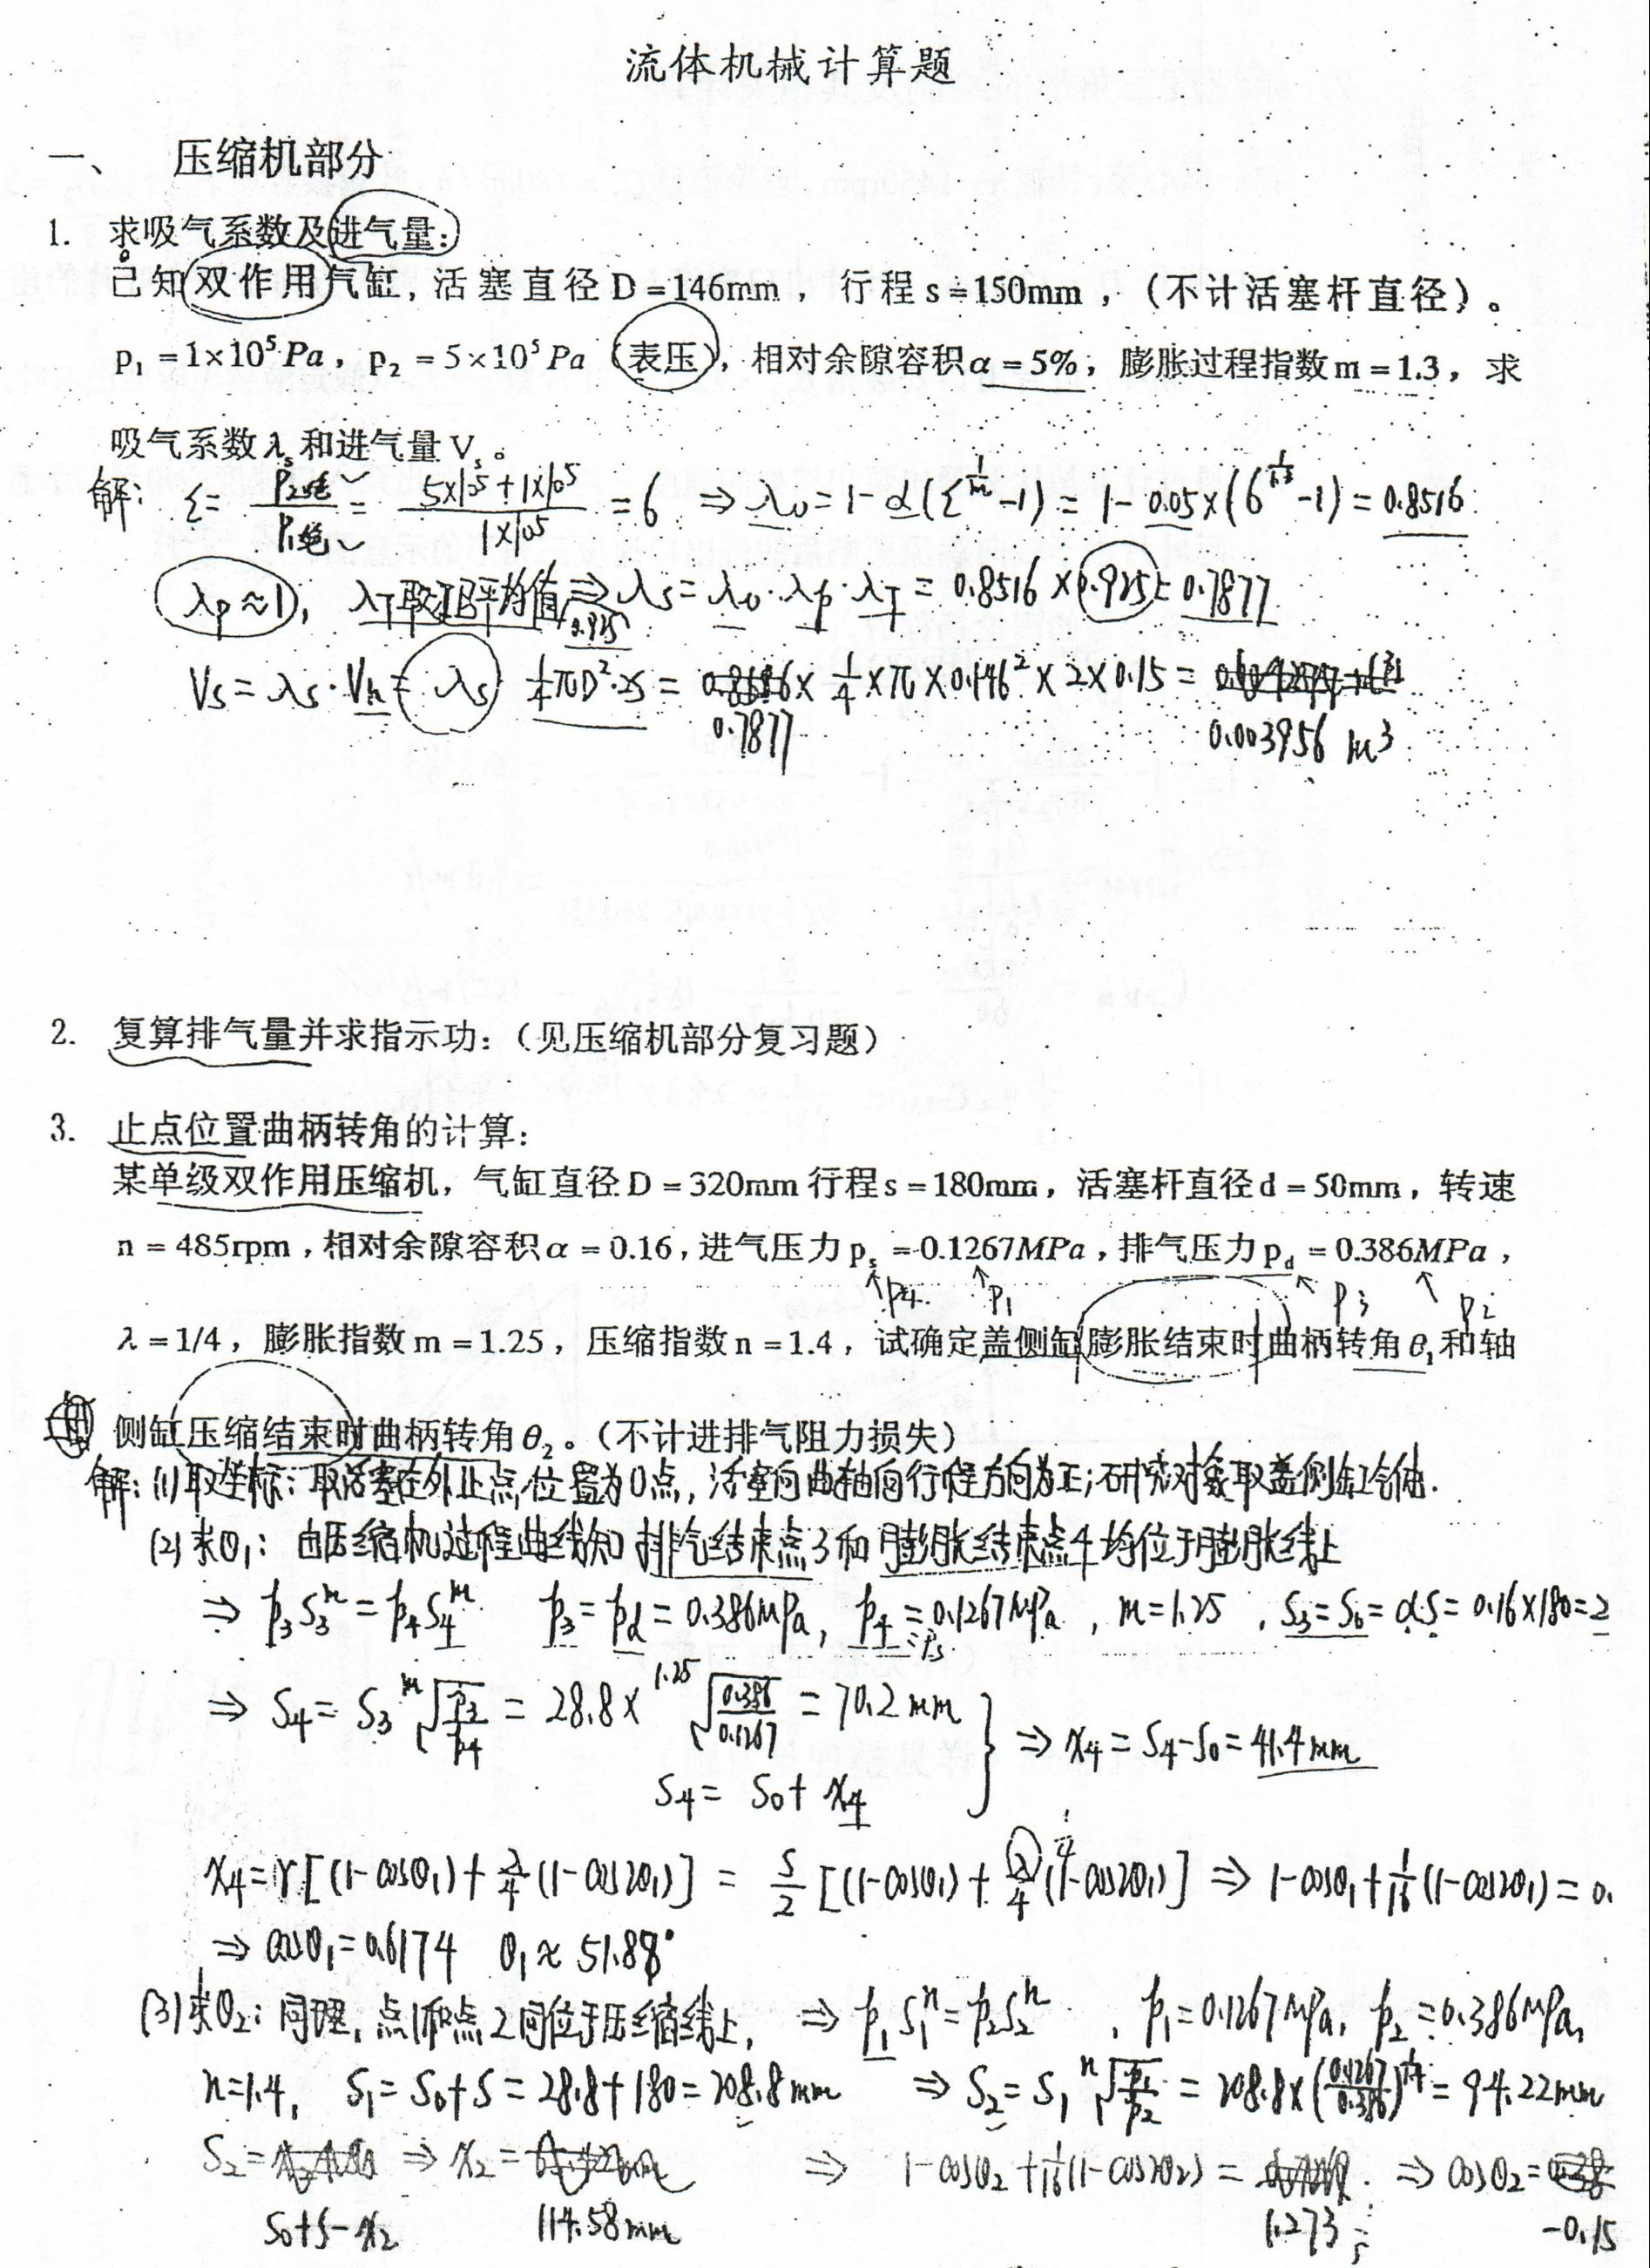 流体机械计算题
一、 压缩机部分
1. 求吸气系数及进气量:
已知双作用气缸, 活塞直径 D=146mm, 行程 s=150mm, (不计活塞杆直径)。
p₁=1×10⁵Pa, p₂=5×10⁵Pa (表压), 相对余隙容积α=5%, 膨胀过程指数m=1.3, 求
吸气系数λs和进气量Vs。
解: ε= p₂绝/p₁绝 = (5×10⁵+1×10⁵)/(1×10⁵) =6 ⇒ λv=1-α(ε^(1/m)-1)=1-0.05×(6^(1/1.3)-1)=0.8516
λp≈1, λT取平均值 0.925 ⇒ λs=λv·λp·λT=0.8516×0.925=0.7877
Vs=λs·Vh=λs ¼πD²·2s= 0.7877 ×¼×π×0.146²×2×0.15= 0.003956 m³
2. 复算排气量并求指示功:(见压缩机部分复习题)
3. 止点位置曲柄转角的计算:
某单级双作用压缩机, 气缸直径D=320mm 行程s=180mm, 活塞杆直径d=50mm, 转速
n=485rpm, 相对余隙容积α=0.16, 进气压力ps=0.1267MPa, 排气压力pd=0.386MPa,
↑p₄ ↑p₁ ↑p₃ ↑p₂
λ=1/4, 膨胀指数m=1.25, 压缩指数n=1.4, 试确定盖侧缸膨胀结束时曲柄转角θ₁和轴
侧缸压缩结束时曲柄转角θ₂。(不计进排气阻力损失)
解: (1)取坐标: 取活塞在外止点位置为0点, 活塞向曲轴向行程方向为正; 研究对象取盖侧缸气体.
(2)求θ₁: 由压缩机过程曲线知 排气结束点3和膨胀结束点4均位于膨胀线上
⇒ p₃S₃^m=p₄S₄^m p₃=pd=0.386MPa, p₄=ps=0.1267MPa, m=1.25, S₃=S₀=αS=0.16×180=2
⇒ S₄=S₃ ᵐ√(p₃/p₄) =28.8× ¹·²⁵√(0.386/0.1267) =70.2mm
S₄=S₀+x₄ } ⇒ x₄=S₄-S₀=41.4mm
x₄=r[(1-cosθ₁)+λ/4(1-cos2θ₁)] = s/2[(1-cosθ₁)+λ/4(1-cos2θ₁)] ⇒ 1-cosθ₁+1/16(1-cos2θ₁)=0.
⇒ cosθ₁=0.6174 θ₁≈51.88°
(3)求θ₂: 同理, 点1和点2同位于压缩线上, ⇒ p₁S₁ⁿ=p₂S₂ⁿ, p₁=0.1267MPa, p₂=0.386MPa,
n=1.4, S₁=S₀+S=28.8+180=208.8mm ⇒ S₂=S₁ ⁿ√(p₁/p₂) =208.8×(0.1267/0.386)^(1/1.4)=94.22mm
S₂= S₀+S-x₂ ⇒ x₂= 114.58mm ⇒ 1-cosθ₂+1/16(1-cos2θ₂)= 1.273 ⇒ cosθ₂= -0.15